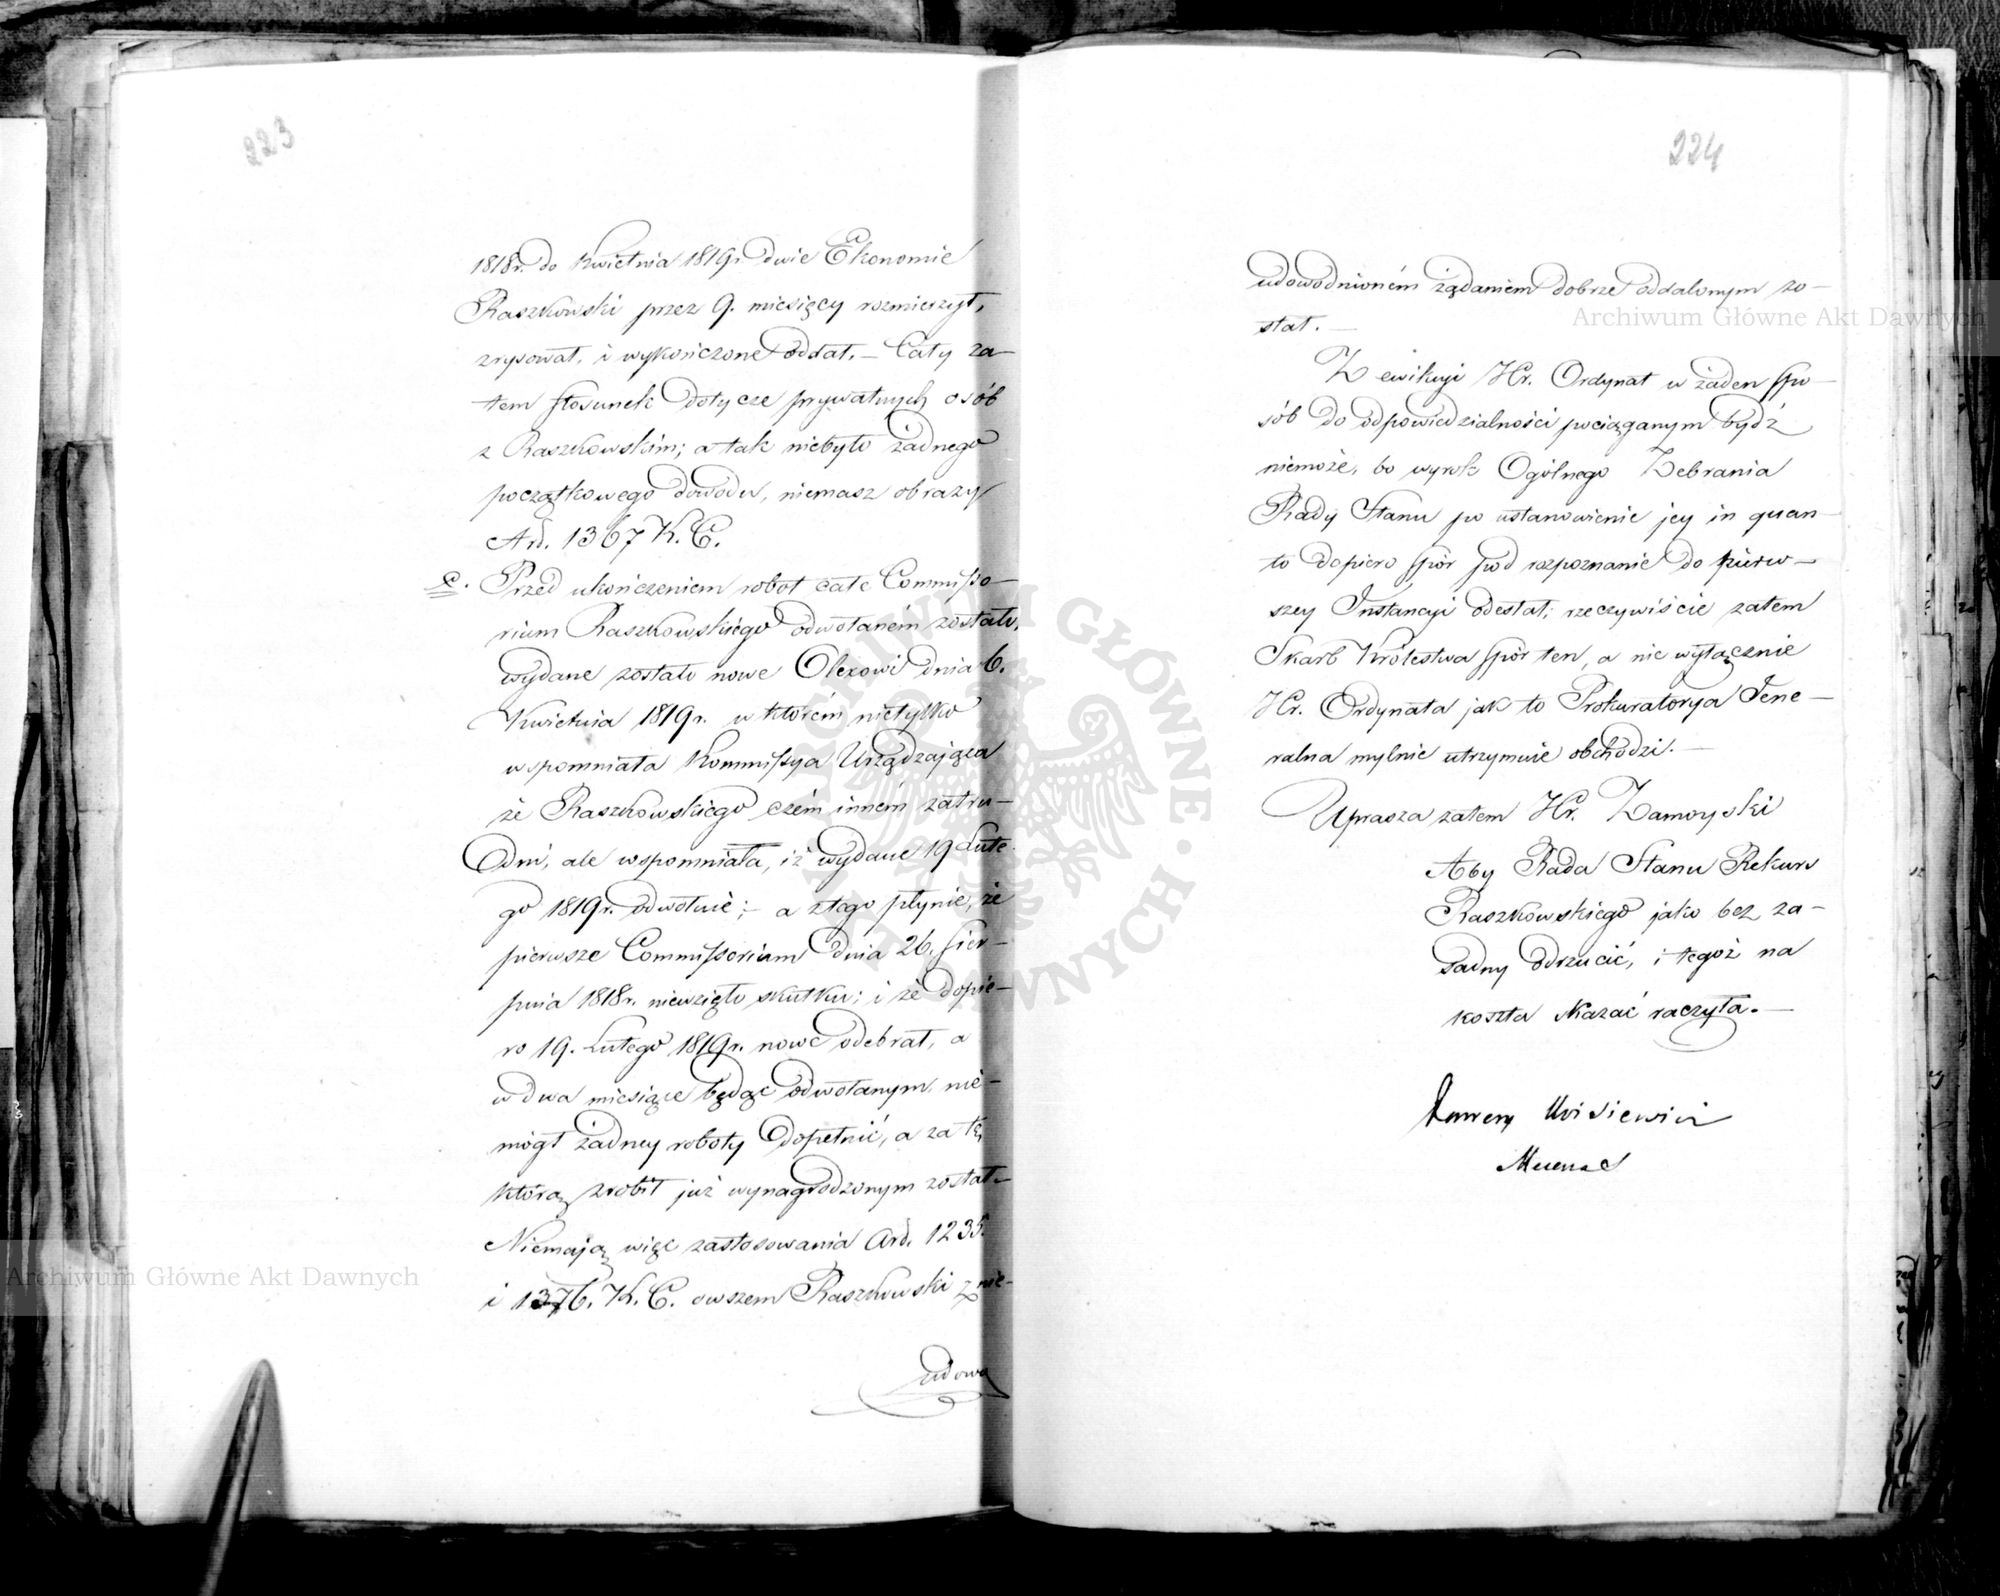 223
1818r. do Kwietnia 1819r. dwie Ekonomie
Raszkowski przez 9. miesięcy rozmierzył,
zrysował, i wykończone oddał. — Cały za—
tem stosunek dotycze prywatnych osób
z Raszkowskim; a tak niebyło żadnego
początkowego dowodu, niemasz obrazy
Art. 1367 K. C.
c. Przed ukończeniem robot całe Commisso—
rium Raszkowskiego odwołaném zostało,
wydane zostało nowe Olexowi dnia 6.
Kwietnia 1819r. w którém nietylko
wspomniała Kommissya Urządzająca
że Raszkowskiego czém inném zatru—
dni, ale wspomniała, iż wydane 19 Lute
go 1819r. odwołuie; — a ztego płynie, że
pierwsze Commissorium dnia 26. Sier—
pnia 1818r. niewzięło skutku; i że dopie—
ro 19. Lutego 1819r. nowe odebrał, a
w dwa miesiące będąc odwołanym, nie—
mógł żadney roboty dopełnić, a za tę
którą zrobił już wynagrodzonym został.
Niemają więc zastosowania Art. 1235.
i 1376. K. C. owszem Raszkowski z nie—
udowo
224
udowodnioném żądaniem dobrze oddalonym zo—
stał. —
Z ewikcyi Hr. Ordynat w żaden spo—
sób do odpowiedzialności pociąganym bydź
niemoże, bo wyrok Ogólnego Zebrania
Rady Stanu po ustanowienie jey in quan—
to dopiero spór pod rozpoznanie do pierw—
szey Instancyi odesłał; rzeczywiście zatem
Skarb Królestwa spór ten, a nie wyłącznie
Hr. Ordynata jak to Prokuratorya Jene—
ralna mylnie utrzymuie obchodzi. —
Uprasza zatem Hr. Zamoyski
Aby Rada Stanu Rekurs
Raszkowskiego jako bez za—
sadny odrzucić, i tegoż na
koszta skazać raczyła. —
Mecenas
Archiwum Główne Akt Dawnych
Archiwum Główne Akt Dawnych
ARCHIWUM GŁÓWNE AKT DAWNYCH